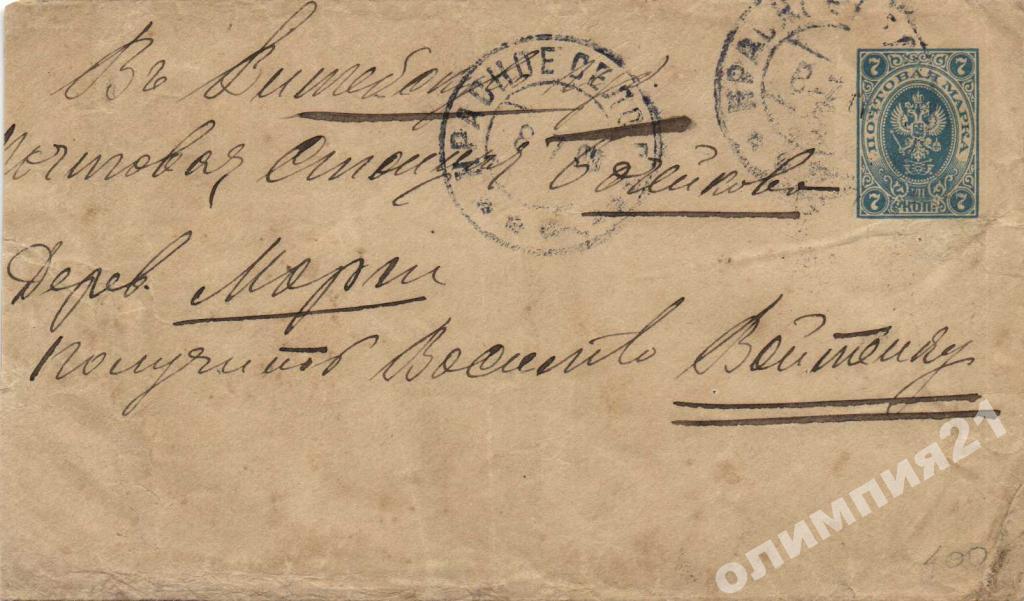 Въ Витебскую г.
Почтовая станция Бочейково
Дерев. Марги
получить Василию Войтенку
КРАСНОЕ СЕЛО
КРАСНОЕ
7 7
ПОЧТОВАЯ МАРКА
7 КОП. 7
олимпия21
400